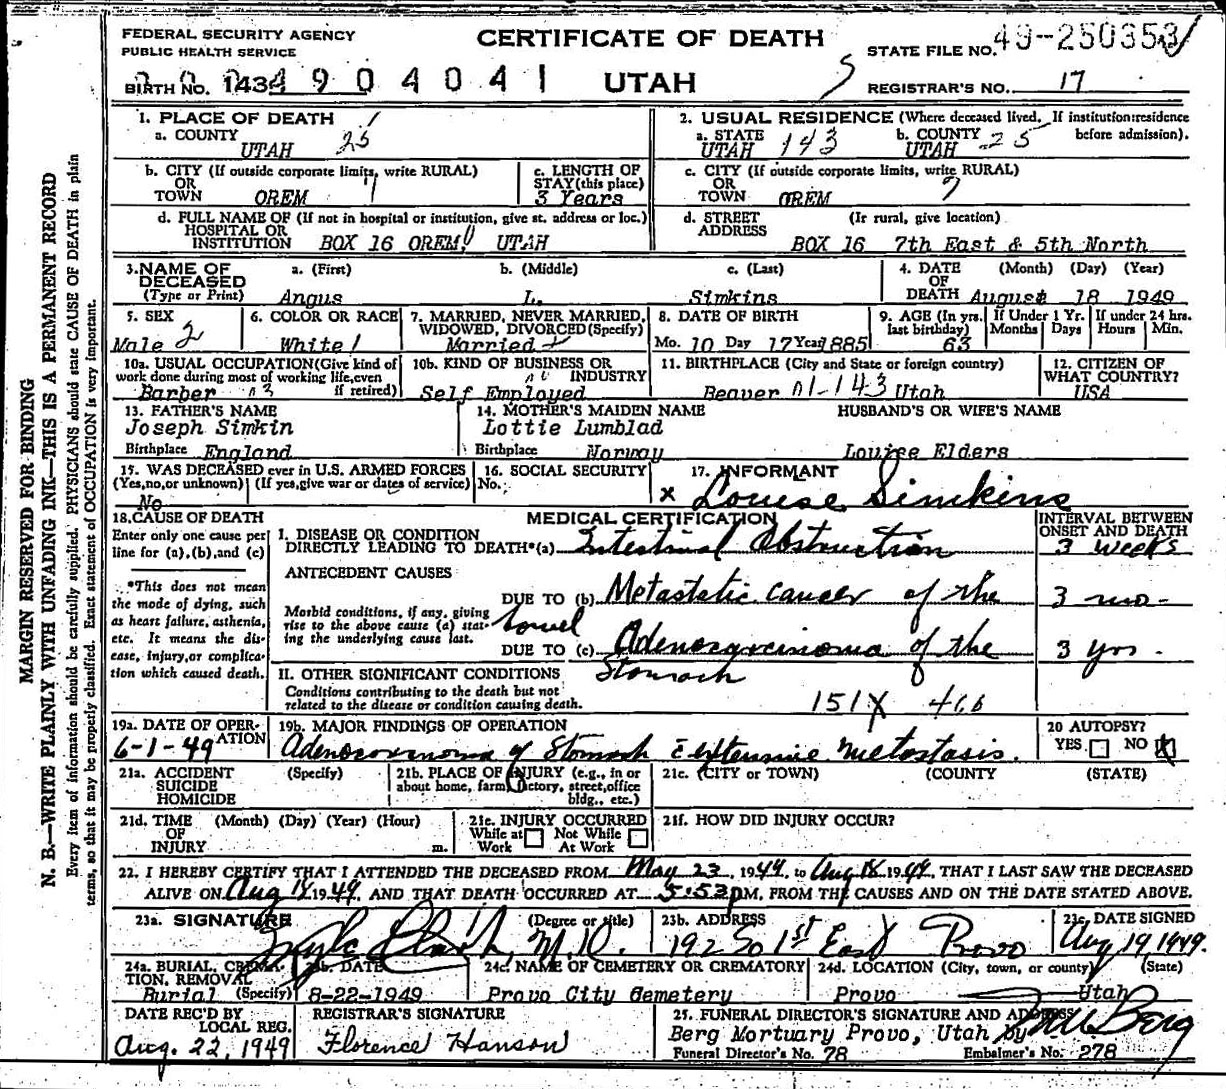 FEDERAL SECURITY AGENCY
PUBLIC HEALTH SERVICE
CERTIFICATE OF DEATH
STATE FILE NO. 49-250353
BIRTH NO. 1434904041
UTAH
REGISTRAR'S NO. 17
1. PLACE OF DEATH
a. COUNTY
UTAH 25
2. USUAL RESIDENCE (Where deceased lived, If institution:residence before admission).
a. STATE UTAH 143 b. COUNTY UTAH 25
b. CITY (If outside corporate limits, write RURAL)
OR
TOWN OREM
c. LENGTH OF STAY(this place)
3 Years
c. CITY (If outside corporate limits, write RURAL)
OR
TOWN OREM
d. FULL NAME OF (If not in hospital or institution, give st. address or loc.)
HOSPITAL OR
INSTITUTION BOX 16 OREM, UTAH
d. STREET ADDRESS (If rural, give location)
BOX 16 7th East & 5th North
3. NAME OF DECEASED
(Type or Print)
a. (First) b. (Middle) c. (Last)
Angus L. Simkins
4. DATE OF DEATH (Month) (Day) (Year)
August 18 1949
5. SEX
Male 2
6. COLOR OR RACE
White 1
7. MARRIED, NEVER MARRIED, WIDOWED, DIVORCED(Specify)
Married
8. DATE OF BIRTH
Mo. 10 Day 17 Year 1885
9. AGE (In yrs. last birthday)
63
If Under 1 Yr. Months Days
If under 24 hrs. Hours Min.
10a. USUAL OCCUPATION(Give kind of work done during most of working life,even if retired)
Barber
10b. KIND OF BUSINESS OR INDUSTRY
Self Employed
11. BIRTHPLACE (City and State or foreign country)
Beaver 01-143 Utah
12. CITIZEN OF WHAT COUNTRY?
USA
13. FATHER'S NAME
Joseph Simkin
Birthplace England
14. MOTHER'S MAIDEN NAME
Lottie Lumblad
Birthplace Norway
HUSBAND'S OR WIFE'S NAME
Louise Elders
15. WAS DECEASED ever in U.S. ARMED FORCES
(Yes,no,or unknown) (If yes,give war or dates of service)
No
16. SOCIAL SECURITY
No.
17. INFORMANT
x Louise Simkins
18. CAUSE OF DEATH
Enter only one cause per line for (a),(b),and (c)
*This does not mean the mode of dying, such as heart failure, asthenia, etc. It means the disease, injury,or complication which caused death.
MEDICAL CERTIFICATION
I. DISEASE OR CONDITION
DIRECTLY LEADING TO DEATH*(a) Intestinal Obstruction
INTERVAL BETWEEN ONSET AND DEATH
3 weeks
ANTECEDENT CAUSES
Morbid conditions, if any, giving rise to the above cause (a) stating the underlying cause last.
DUE TO (b) Metastatic cancer of the bowel
3 mo.
DUE TO (c) Adenocarcinoma of the Stomach
3 yrs.
II. OTHER SIGNIFICANT CONDITIONS
Conditions contributing to the death but not related to the disease or condition causing death.
151X 466
19a. DATE OF OPERATION
6-1-49
19b. MAJOR FINDINGS OF OPERATION
Adenocarcinoma of Stomach c extensive metastasis.
20 AUTOPSY?
YES NO X
21a. ACCIDENT
SUICIDE
HOMICIDE
(Specify)
21b. PLACE OF INJURY (e.g., in or about home, farm, factory, street,office bldg., etc.)
21c. (CITY or TOWN) (COUNTY) (STATE)
21d. TIME OF INJURY (Month) (Day) (Year) (Hour) m.
21e. INJURY OCCURRED
While at Work Not While At Work
21f. HOW DID INJURY OCCUR?
22. I HEREBY CERTIFY THAT I ATTENDED THE DECEASED FROM May 23, 1949, to Aug 18, 1949, THAT I LAST SAW THE DECEASED
ALIVE ON Aug 18 1949, AND THAT DEATH OCCURRED AT 5:53 P.M., FROM THE CAUSES AND ON THE DATE STATED ABOVE.
23a. SIGNATURE (Degree or title)
Clark, M.D.
23b. ADDRESS
192 So 1st East Provo
23c. DATE SIGNED
Aug 19, 1949.
24a. BURIAL, CREMATION, REMOVAL (Specify)
Burial
24b. DATE
8-22-1949
24c. NAME OF CEMETERY OR CREMATORY
Provo City Cemetery
24d. LOCATION (City, town, or county) (State)
Provo Utah
DATE REC'D BY LOCAL REG.
Aug. 22, 1949
REGISTRAR'S SIGNATURE
Florence Hanson
25. FUNERAL DIRECTOR'S SIGNATURE AND ADDRESS
Berg Mortuary Provo, Utah by Berg
Funeral Director's No. 78 Embalmer's No. 278
MARGIN RESERVED FOR BINDING
N. B.—WRITE PLAINLY WITH UNFADING INK—THIS IS A PERMANENT RECORD
Every item of information should be carefully supplied. PHYSICIANS should state CAUSE OF DEATH in plain
terms, so that it may be properly classified. Exact statement of OCCUPATION is very important.